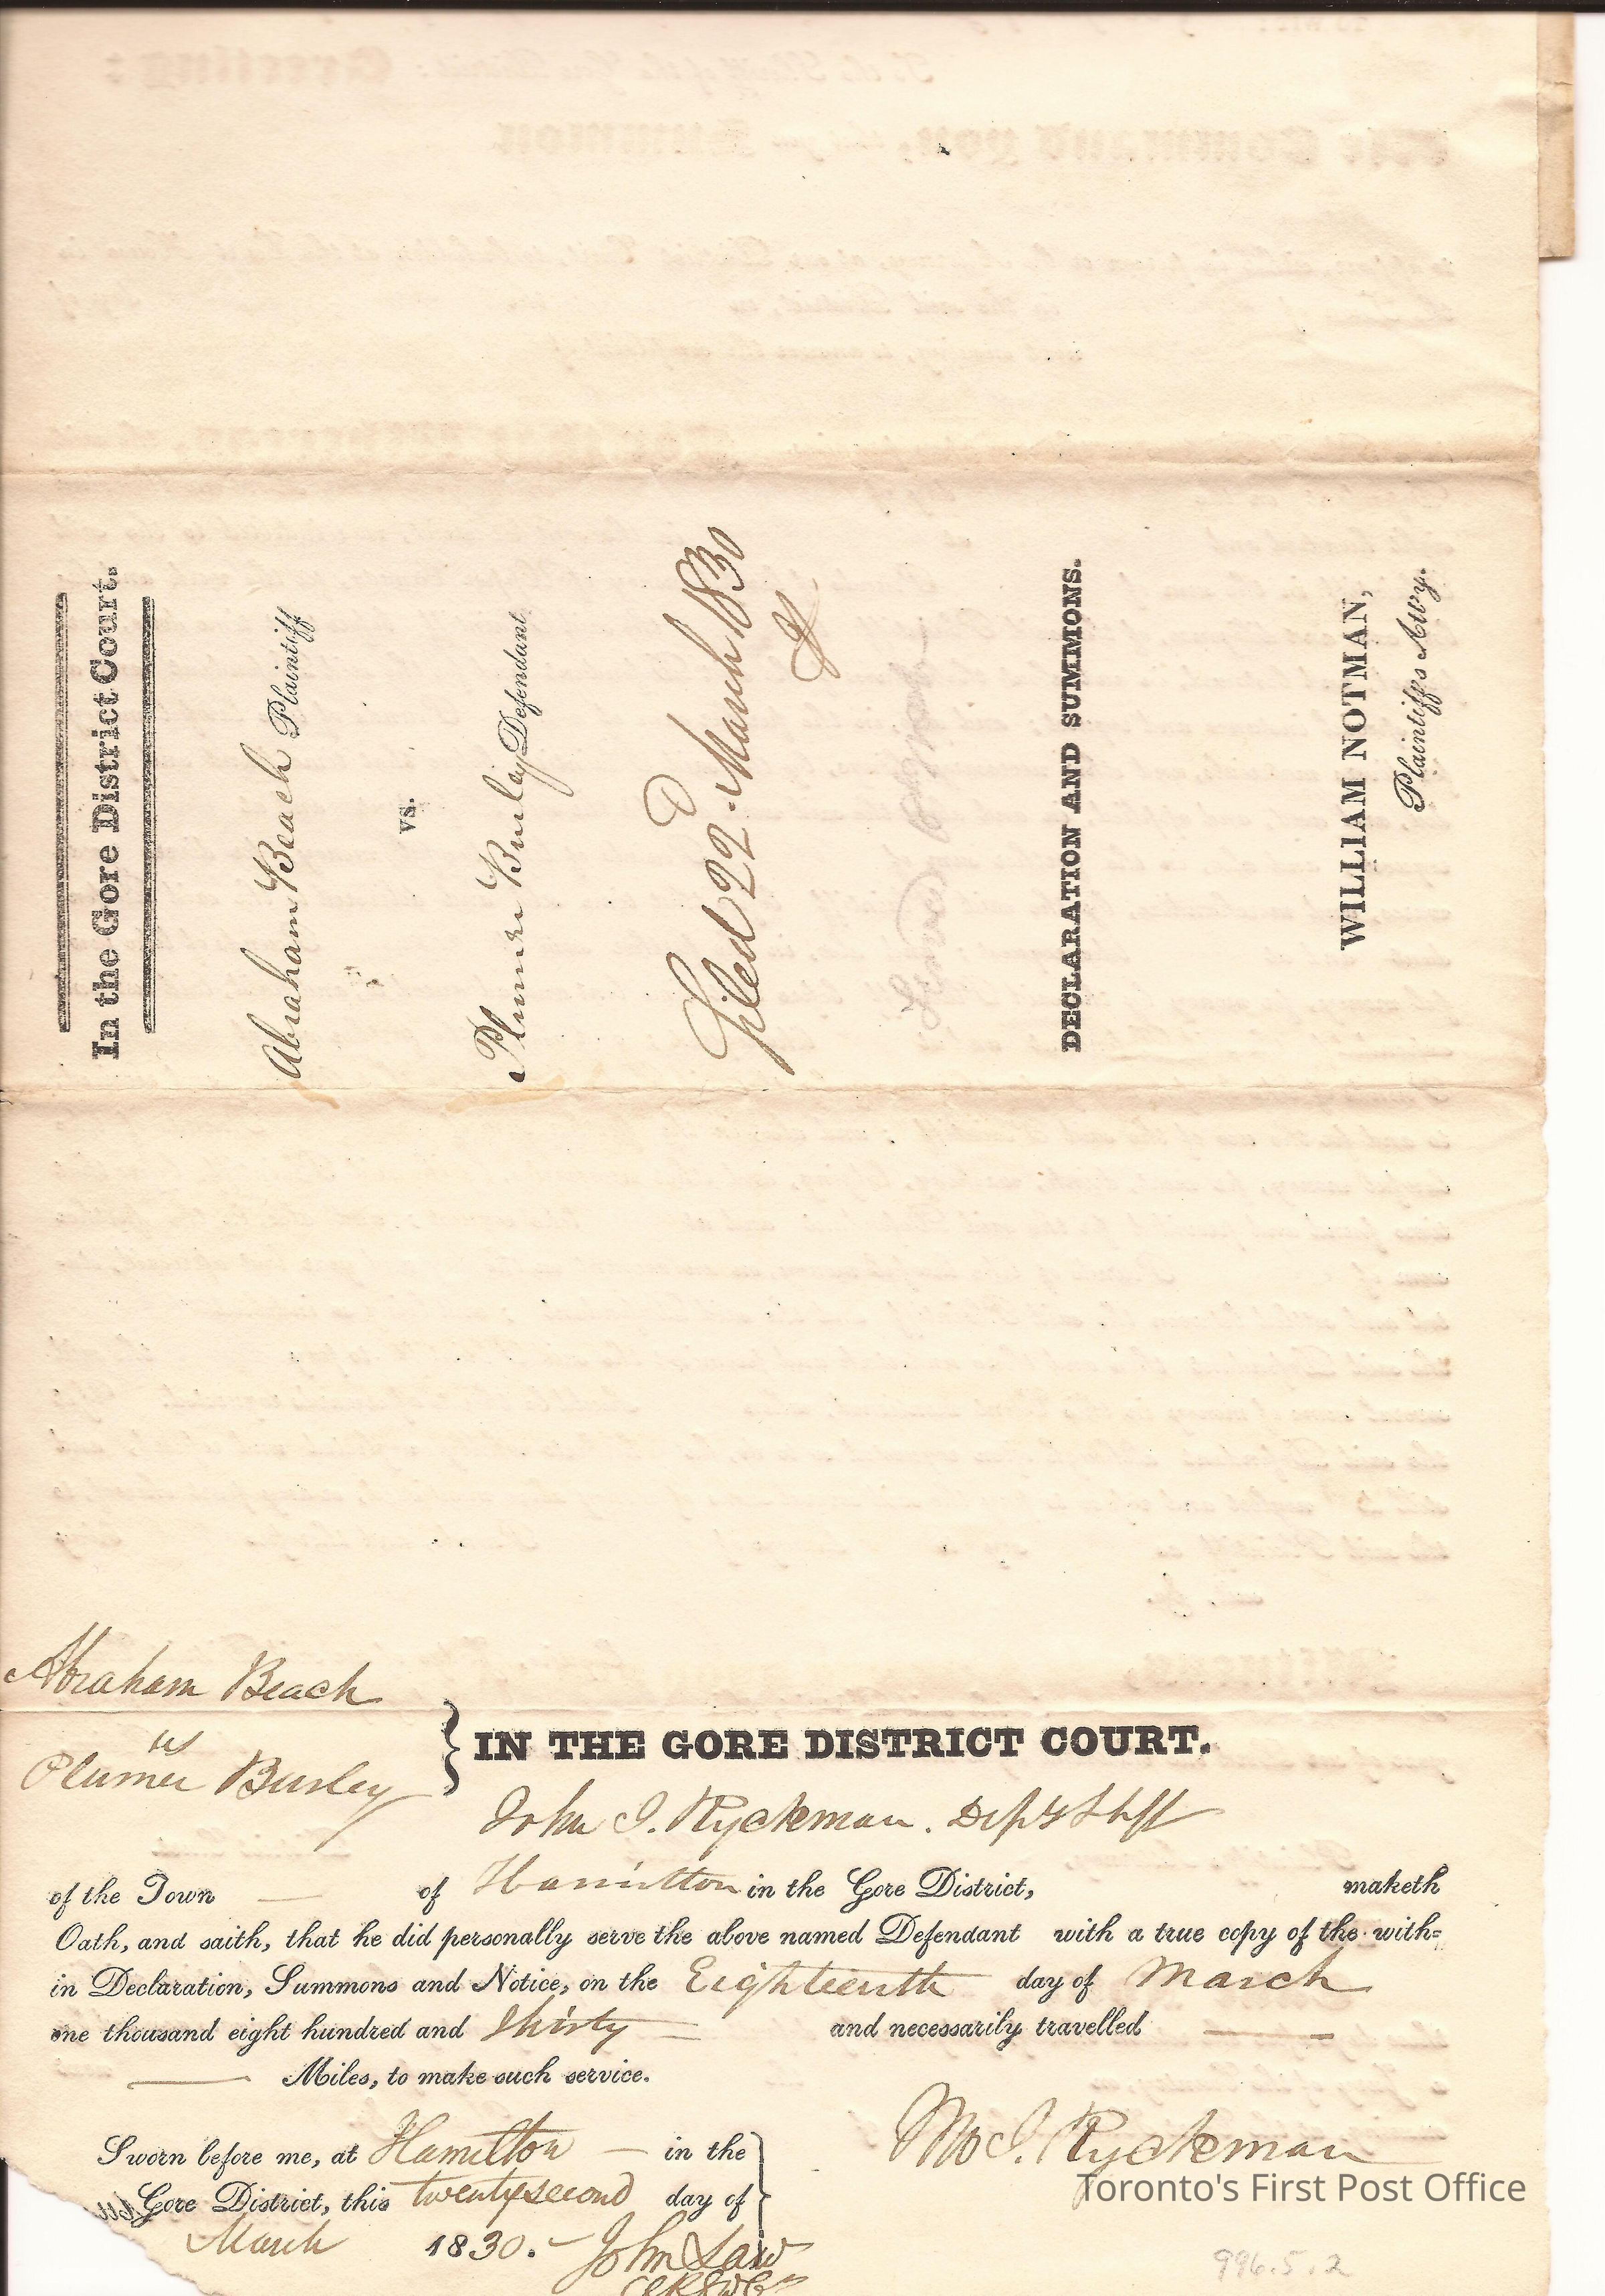 In the Gore District Court.
Abraham Beach Plaintiff
vs.
Plumer Burley Defendant
Filed 22d March 1830
DECLARATION AND SUMMONS.
WILLIAM NOTMAN,
Plaintiff's Atty.
Abraham Beach
vs
Plumer Burley
} IN THE GORE DISTRICT COURT.
John I. Ryckman. Depy Shff
of the Town — of Hamilton in the Gore District, maketh
Oath, and saith, that he did personally serve the above named Defendant with a true copy of the with-
in Declaration, Summons and Notice, on the Eighteenth day of March
one thousand eight hundred and Thirty and necessarily travelled
— Miles, to make such service.
Sworn before me, at Hamilton — in the
Gore District, this twenty second day of
March 1830. John Law
I. Ryckman
Toronto's First Post Office
996.5.2